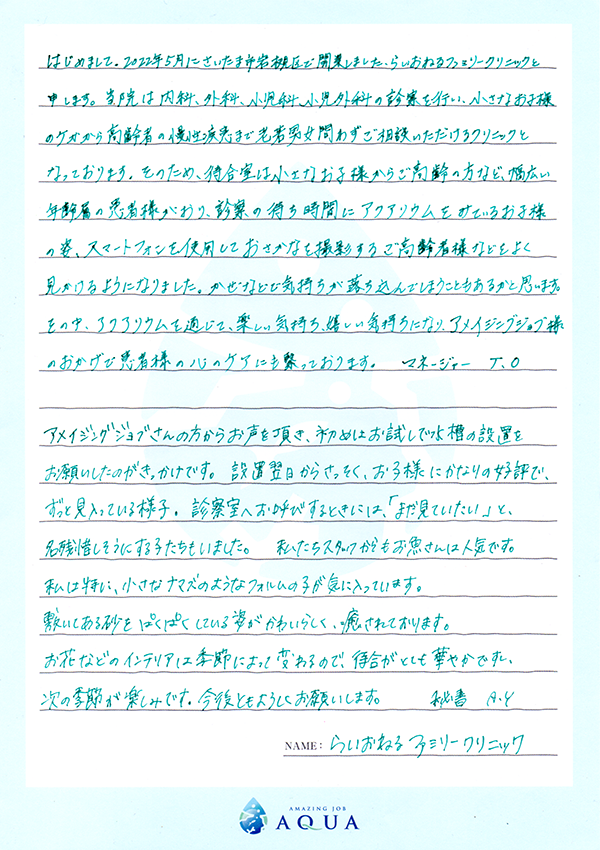 はじめまして。2022年5月にさいたま市岩槻区で開業しました、らいおねるファミリークリニックと
申します。当院は内科、外科、小児科、小児外科の診察を行い、小さなお子様
のケガから高齢者の慢性疾患まで老若男女問わずご相談いただけるクリニックと
なっております。そのため、待合室は小さなお子様からご高齢の方など、幅広い
年齢層の患者様がおり、診察の待ち時間にアクアリウムをみているお子様
の姿、スマートフォンを使用しておさかなを撮影するご高齢者様などをよく
見かけるようになりました。かぜなどで気持ちが落ち込んでしまうこともあるかと思います。
その中、アクアリウムを通じて、楽しい気持ち、嬉しい気持ちになり、アメイジングジョブ様
のおかげで患者様の心のケアにも繋っております。 マネージャー T.O
アメイジングジョブさんの方からお声を頂き、初めはお試しで水槽の設置を
お願いしたのがきっかけです。設置翌日からさっそく、お子様にかなりの好評で、
ずっと見入っている様子。診察室へお呼びするときには、「まだ見ていたい」と、
名残惜しそうにする子たちもいました。 私たちスタッフからもお魚さんは人気です。
私は特に、小さなナマズのようなフォルムの子が気に入っています。
敷いてある砂をぱくぱくしている姿がかわいらしく、癒されております。
お花などのインテリアは季節によって変わるので、待合がとても華やかですし、
次の季節が楽しみです。今後ともよろしくお願いします。 秘書 A.Y
NAME: らいおねるファミリークリニック
AMAZING JOB
AQUA